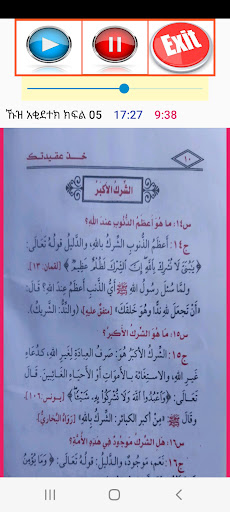 Exit
ኹዝ አቂደተክ ክፍል 05 17:27 9:38
خذ عقيدتك
١٠
الشرك الأكبر
س١٤: ما هو أعظم الذنوب عند الله؟
ج١٤: أعظم الذنوب الشرك بالله، والدليل قوله تعالى:
﴿يَبُنَيَّ لَا تُشْرِكْ بِاللَّهِ إِنَّ الشِّرْكَ لَظُلْمٌ عَظِيمٌ﴾ [لقمان: ١٣].
ولما سئل رسول الله ﷺ أي الذنب أعظم عند الله؟ قال:
«أن تجعل لله ندًّا وهو خلقك» (متفق عليه)، (والند: الشريك).
س١٥: ما هو الشرك الأكبر؟
ج١٥: الشرك الأكبر هو: صرف العبادة لغير الله، كدعاء
غير الله، والاستغاثة بالأموات أو الأحياء الغائبين. قال
﴿وَاعْبُدُوا اللَّهَ وَلَا تُشْرِكُوا بِهِ شَيْئًا﴾
وقال ﷺ: «من أكبر الكبائر: الشرك بالله» (رواه البخاري).
س١٦: هل الشرك موجود في هذه الأمة؟
ج١٦: نعم، موجود، والدليل: قوله تعالى: ﴿وَمَا يُؤْمِنُ